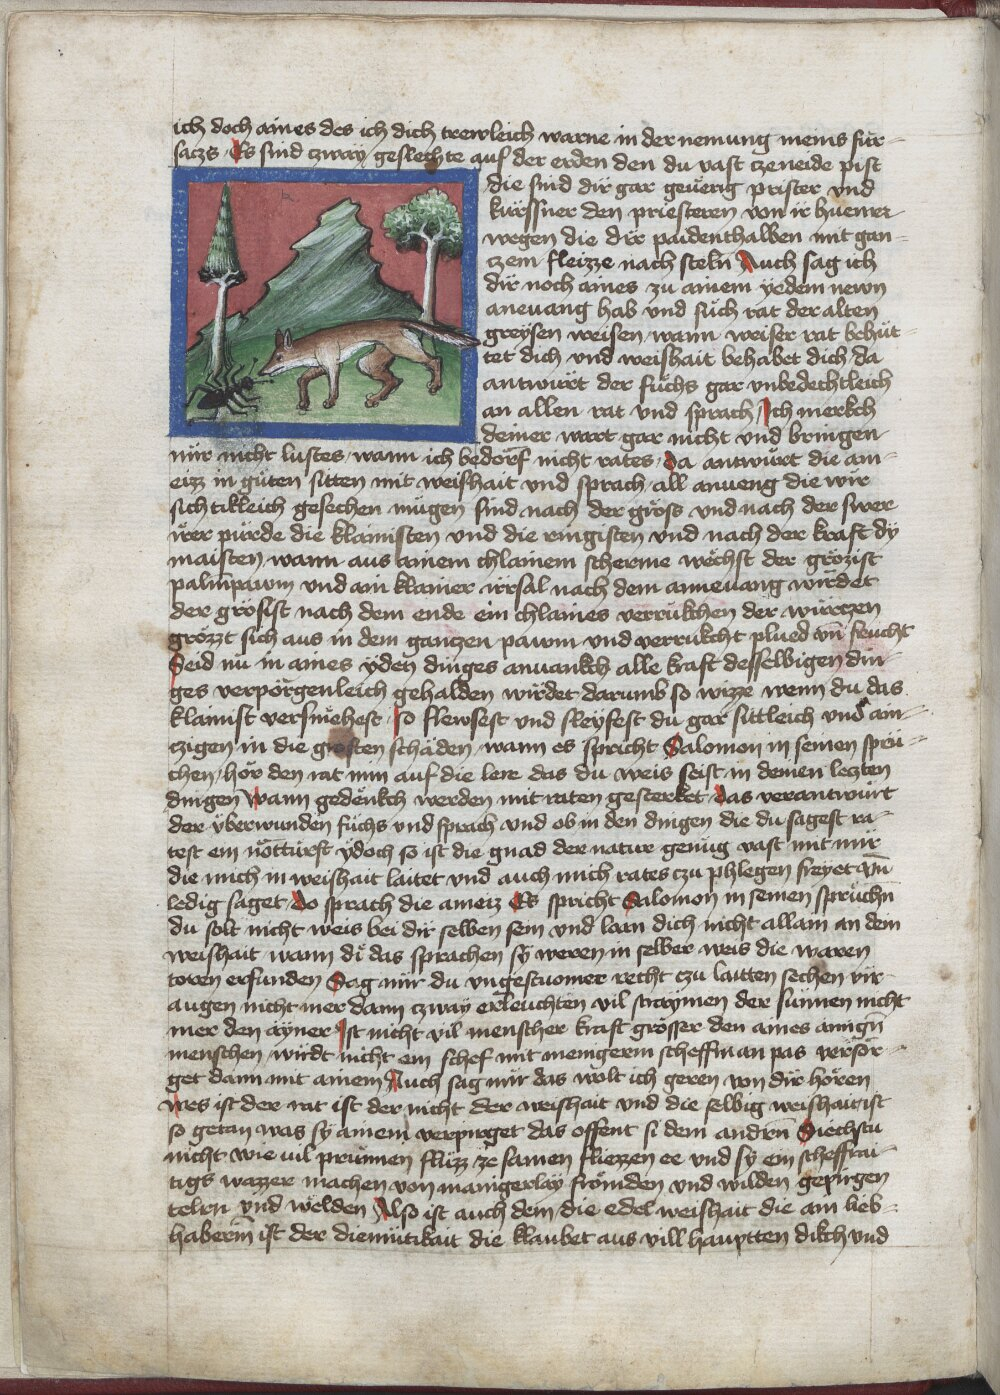 ich doch aines des ich dich trewleich warne in der nemung meins für-
saczs Es sind czway geslechte auf der erden den du vast czeneide pist
die sind dir gar geuerig prister vnd
kürssner den priesteren von ir huener
wegen die dir paidenthalben mit gan-
czem fleizze nach steln Auch sag ich
dir noch aines zu ainem yedem newn
aneuang hab und such rat der alten
greysen weisen wann weiser rat behüt-
tet dich vnd weishait behabet dich da
antwürt der fuchs gar vnbedechtleich
an allen rat vnd sprach Ich merkch
deiner wart gar nicht vnd bringen
mir nicht lustes wann ich bedorf nicht rates da antwürt die am-
eizz in guten sitten mit weishait vnd sprach all anueng die wir
sichtikleich gesechen mügen sind nach der gröss vnd nach der swer
irer pürde die klainisten vnd die ringisten vnd nach der kraft dy
maisten wann aus ainem chlainem scherme wechst der grözist
palmpawm vnd ain klainer irrsal nach dem anneuang wirdet
der grösist nach dem ende ein chlaines verrukchen der würczen
grözzt sich aus in dem ganczen pawm vnd verrukcht plued vn̄ freucht
Seid nu in aines yden dinges anuankch alle kraft desselbigen din-
ges verporgenleich gehalden wirdet darumb so wizze wenn du das
klainist versmehest so flewsest vnd sleyfest du gar sittleich vnd ain-
czigen in die grosten schäden wann es spricht Salomon in seinen sprü-
chen hör den rat nim auf die lere das du weis seist in deinen lezten
dingen Wann gedënkch werden mit raten gesterket das verantwürt
der yberwunden fuchs vnd sprach vnd ob in den dingen die du sagest ra-
test ein notturft ydoch so ist die gnad der natur genüg vast mit mir
die mich in weishait laitet vnd auch mich rates czu phlegen freyet vn̄
ledig saget Do sprach die ameiz Es spricht Salomon in seinen sprüchn̄
du solt nicht weis bei dir selben sein vnd lain dich nicht allain an dein
weishait wann di das sprachen sy weren in selber weis die waren
toren erfunden Sag mir du vngestuomer recht czu laitten sechen vir
augen nicht mer dann czway erleuchten vil straymen der sunnen nicht
mer den ayner Ist nicht vil menscher kraft grösser den aines ainign̄
menschen wirdt nicht ein schef mit menigerm scheffman pas versor-
get dann mit ainem Auch sag mir das wolt ich geren von dir hören
wes ist der rat ist der nicht der weishait vnd die selbig weishait ist
so getan was sy ainem verpirget das offent si dem andrn̄ Siechstu
nicht wie uil prunnen flüzz ze samen fliezzen ee vnd sy ein scheffrai-
tigs wazzer machen von manigerlay frömden vnd wilden gepirgen
telrn vnd welden Also ist auch dem die edel weishait die ain lieb-
haberin̄ ist der diemutikait die klaubet aus vill hauptten dikch vnd